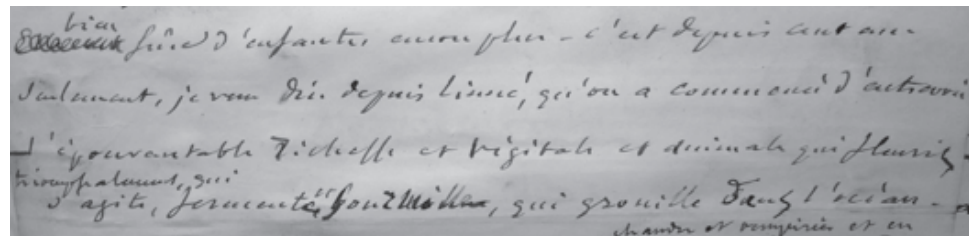 bien
sûre d'enfanter encore plus - c'est depuis cent ans
seulement, je veux dire depuis Linné, qu'on a commencé d'entrevoir
l'épouvantable richesse et végétale et animale qui fleurit
triomphalement, qui
s'agite, fermente, qui grouille dans l'océan -
et